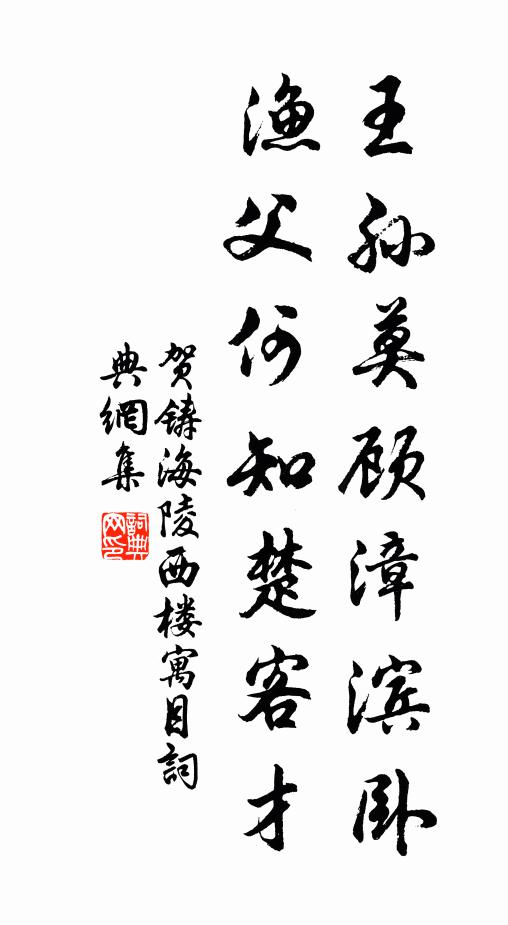 王孙莫顾漳滨卧
渔父何知楚客才
贺铸海陵西楼寓目詞
典網集
詞典
网印